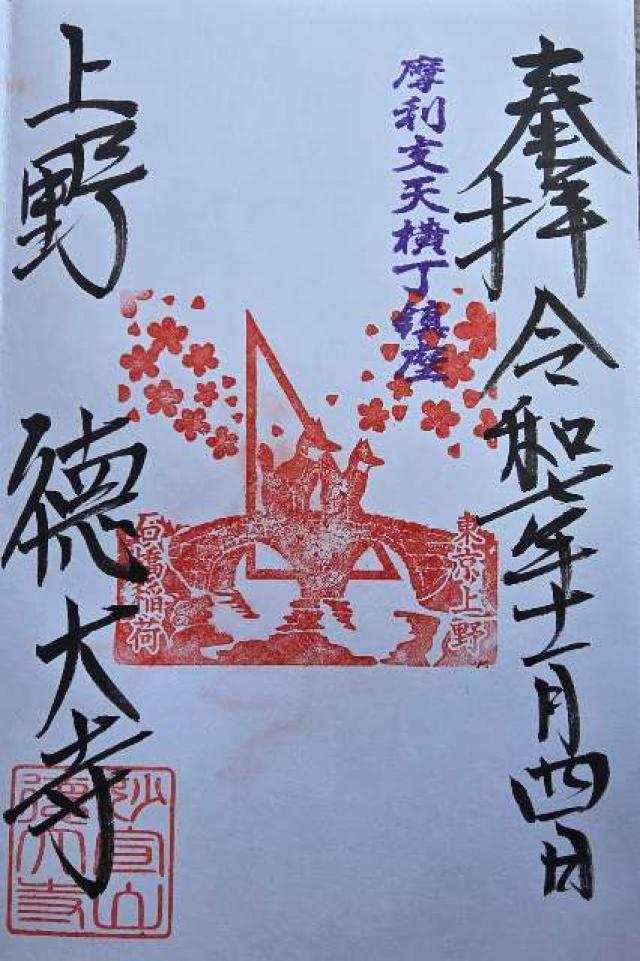 奉拝 令和七年十一月四日
摩利支天横丁鎮座
東京上野
石橋稲荷
上野 徳大寺
妙宣山
徳大寺